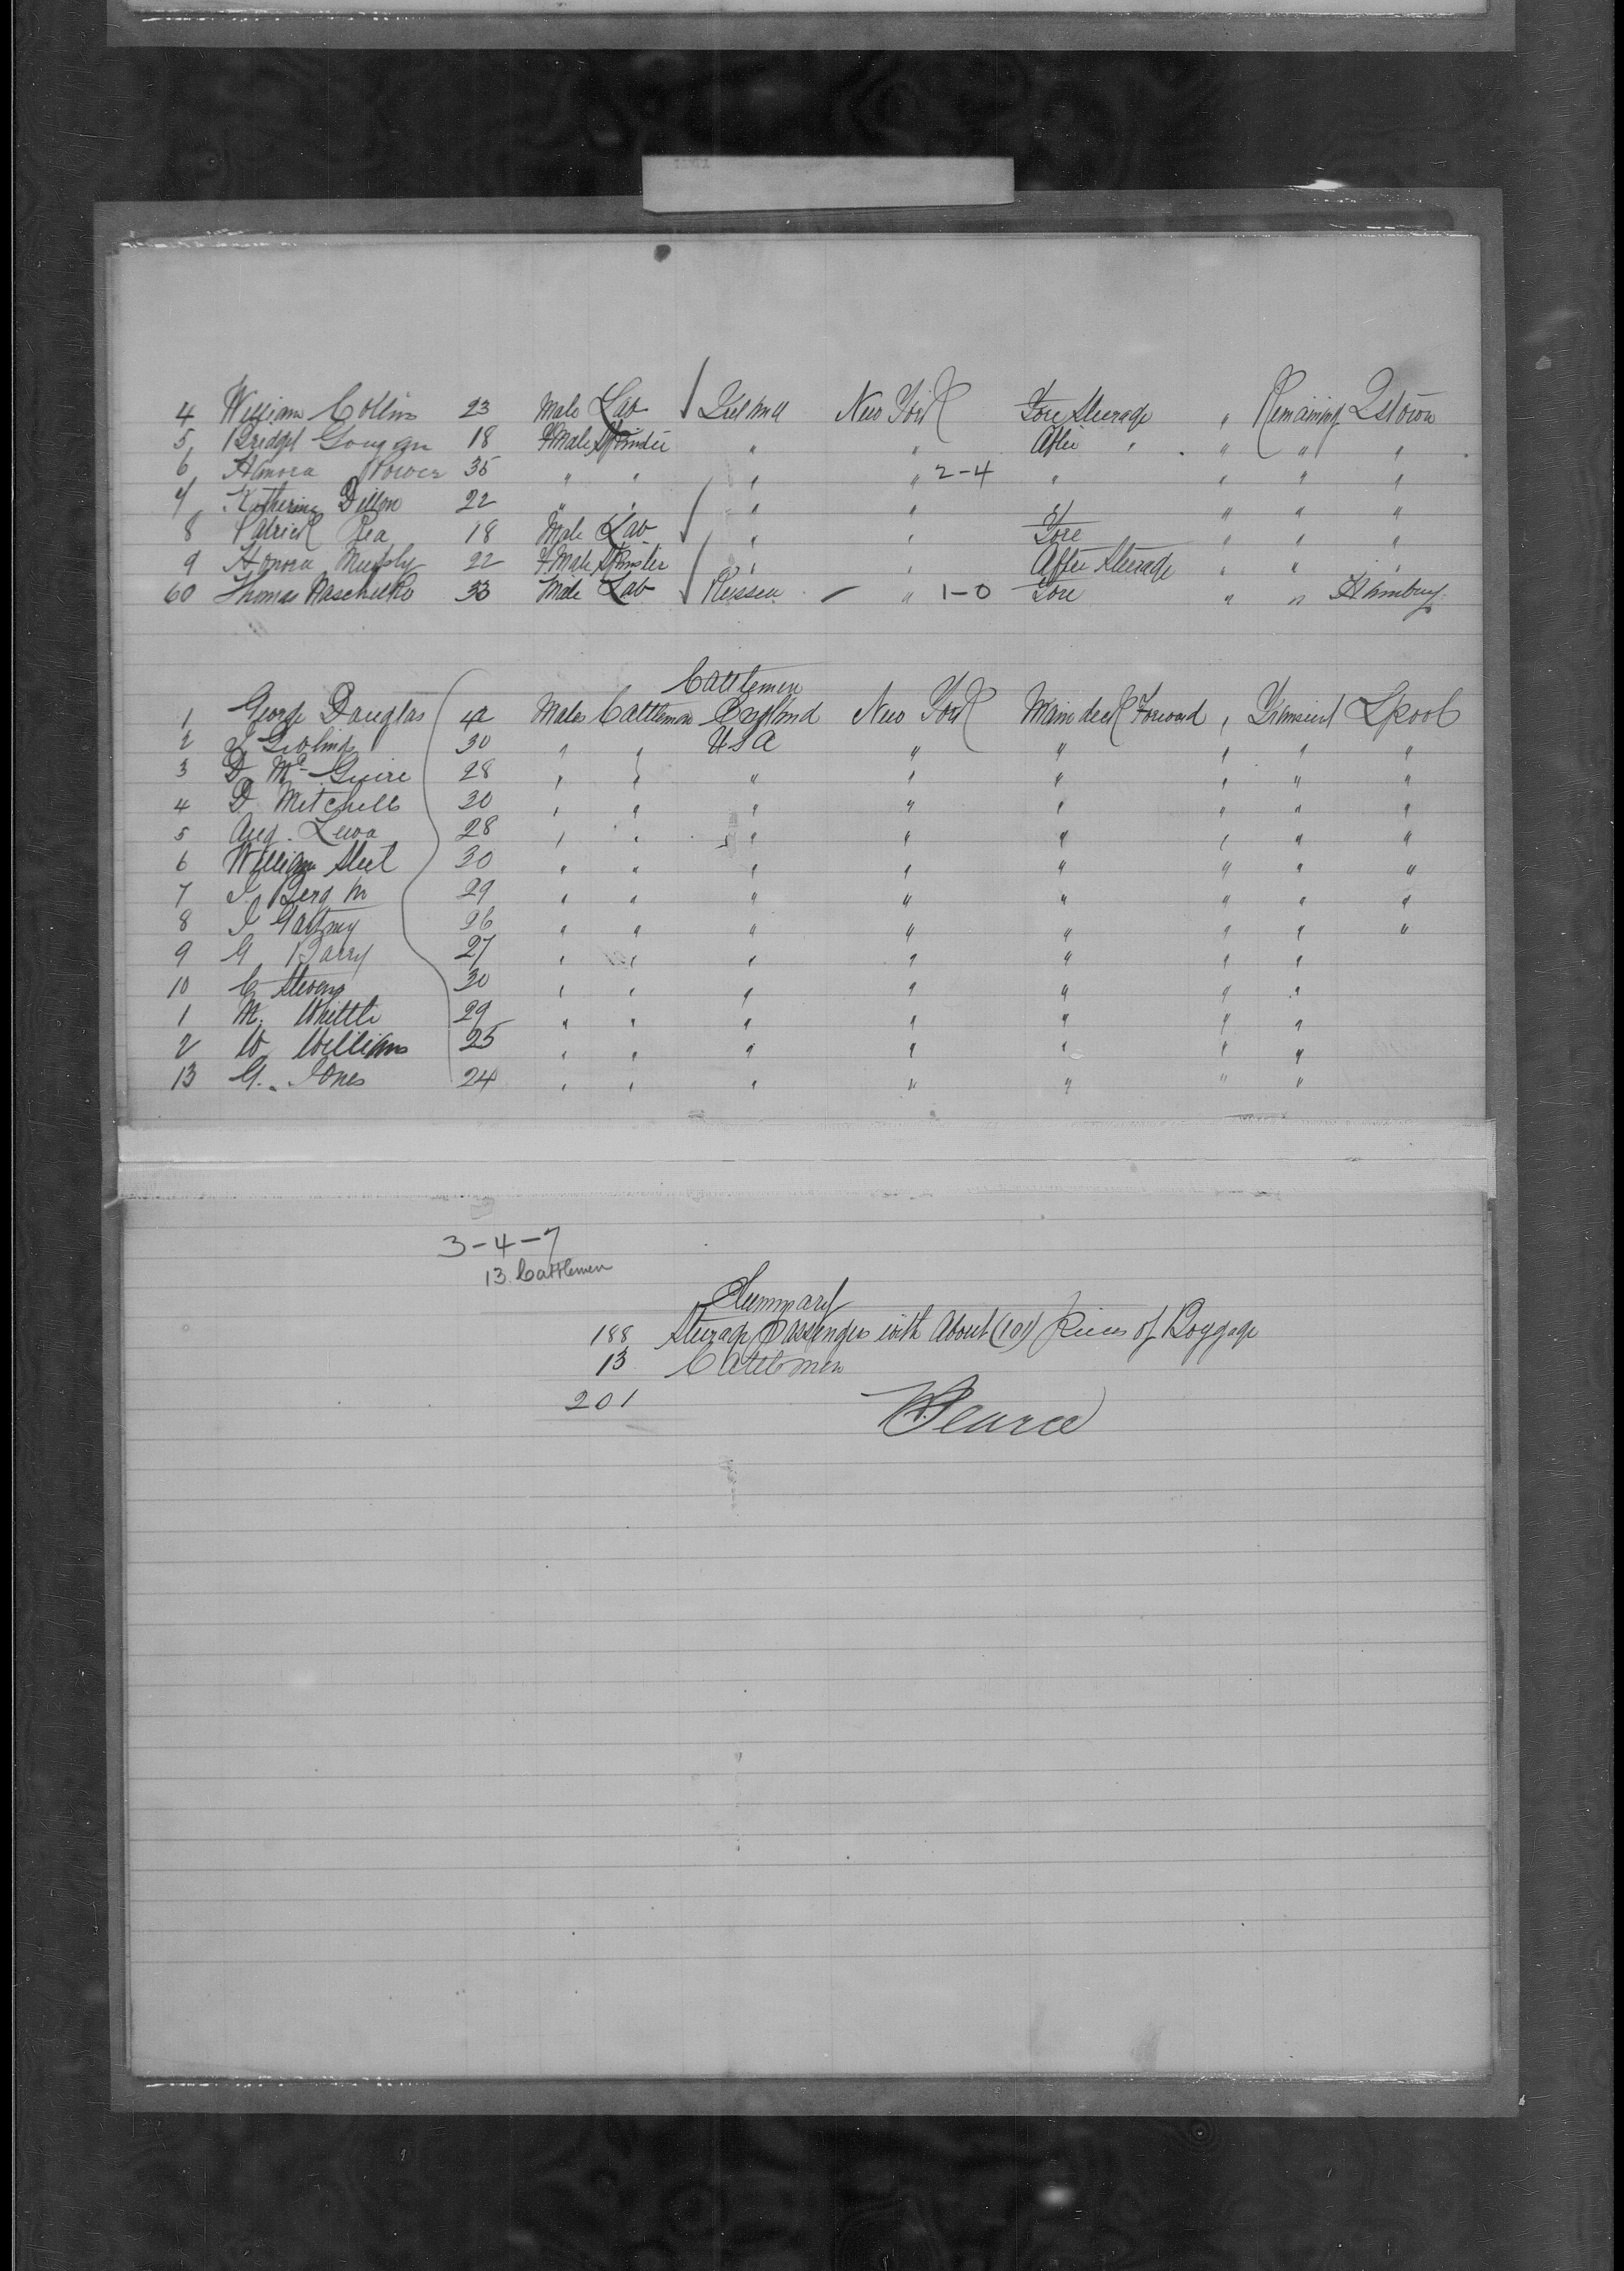 4 William Collins 23 Male Lab Ireland New York Fore Steerage " Remaining Qstown
5 Bridget 18 Female Spinster " " After " " " "
6 Hanora Power 35 " " " " 2-4 " " " "
7 Katherine Dillon 22 " " " " " " " "
8 Patrick Rea 18 Male Lab " " Fore " " "
9 Honora Murphy 22 Female Spinster " " After Steerage " " "
60 Thomas 33 Male Lab Russia " 1-0 Fore " " Hamburg
Cattlemen
1 George Douglas 42 Males Cattlemen England New York Main deck Forward " Transient Lpool
2 30 " " USA " " " " "
3 D Mc Guire 28 " " " " " " " "
4 D. Mitchell 30 " " " " " " " "
5 Aug. 28 " " " " " " " "
6 William Steel 30 " " " " " " " "
7 29 " " " " " " " "
8 26 " " " " " " " "
9 G Barry 27 " " " " " " "
10 C Stevens 30 " " " " " " "
1 M. Whittle 29 " " " " " " "
2 W Williams 25 " " " " " " "
13 G. Jones 24 " " " " " " "
3-4-7
13 Cattlemen
Summary
188 Steerage Passengers with About (101) Pieces of Baggage
13 Cattlemen
201
W Pearce